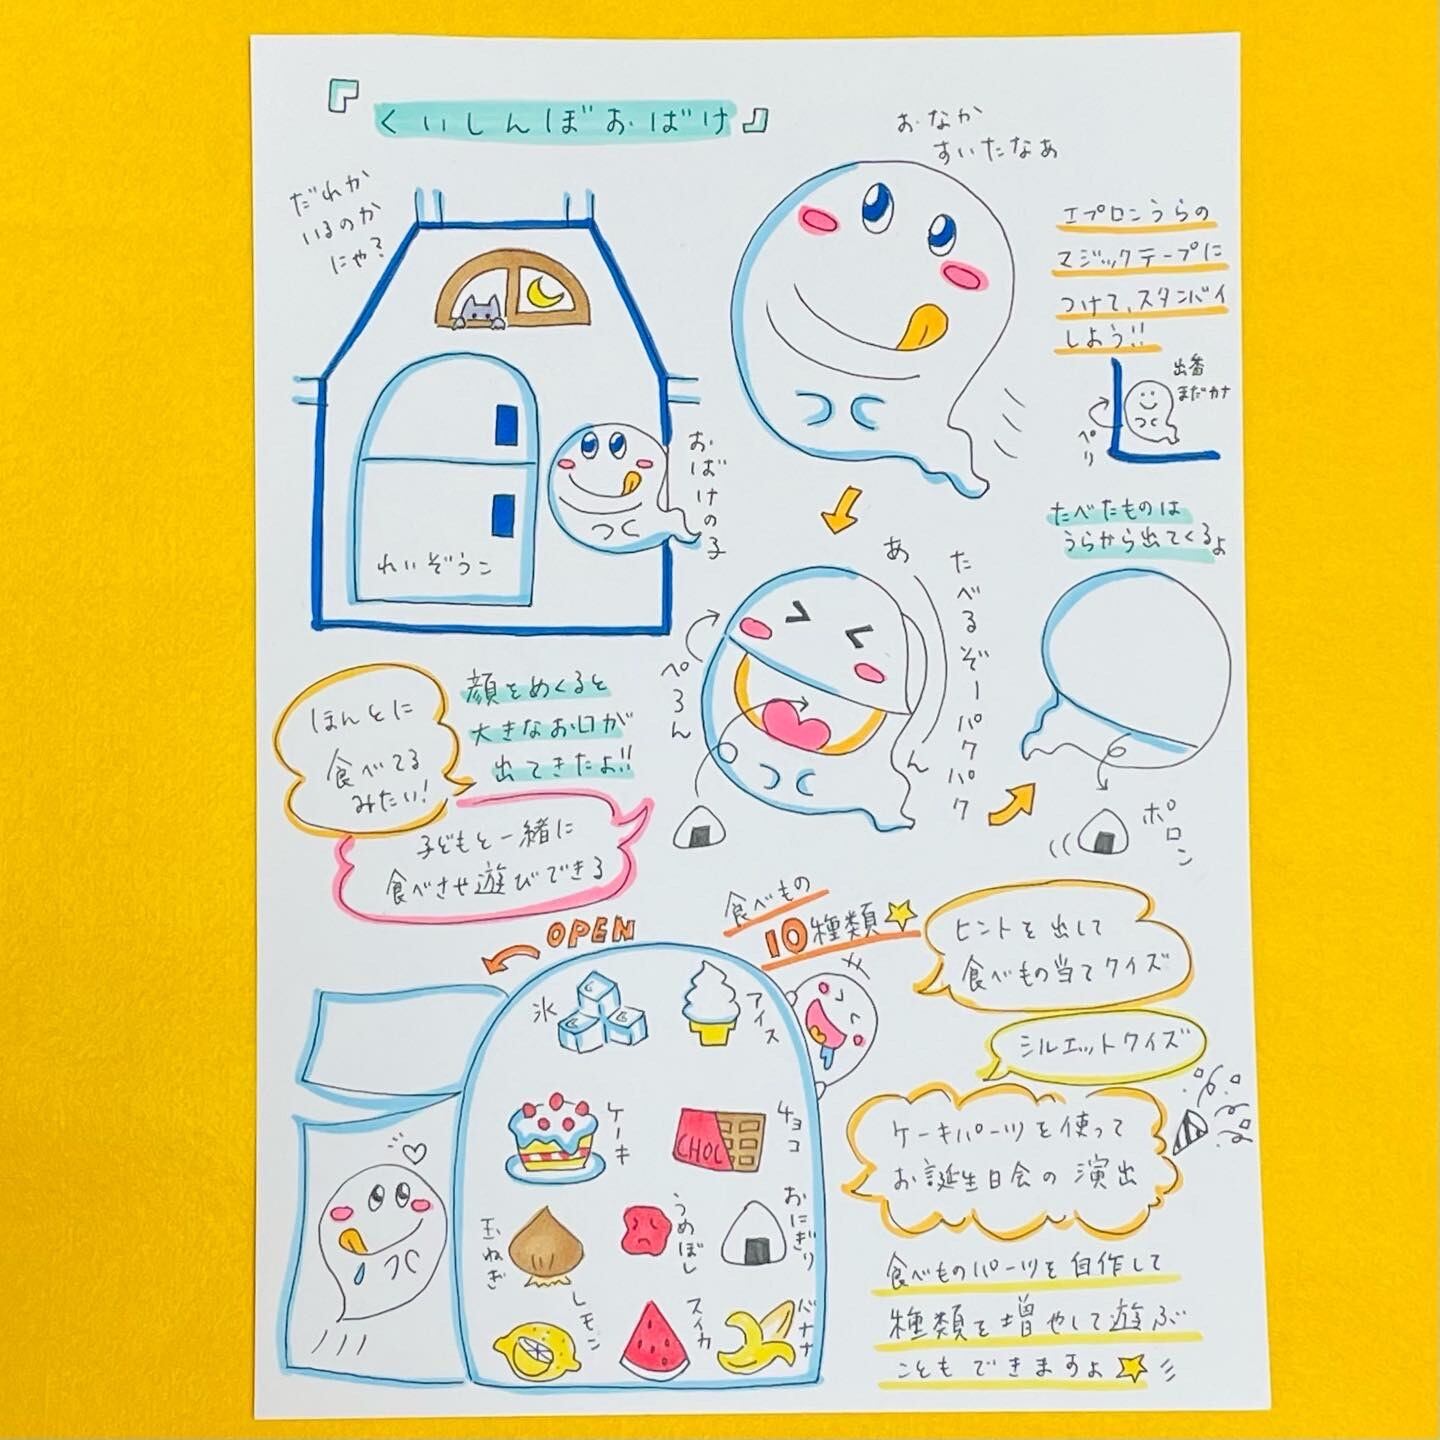 『くいしんぼおばけ』
だれか
いるのか
にゃ？
おなか
すいたなぁ
エプロンうらの
マジックテープに
つけて、スタンバイ
しよう!!
出番
まだカナ
ペリ
れいぞうこ
おばけの子
たべたものは
うらから出てくるよ
あ
ん
たべるぞーパクパク
ぺろん
ポロン
顔をめくると
大きなお口が
出てきたよ!!
ほんとに
食べてる
みたい!
子どもと一緒に
食べさせ遊びできる
食べもの
10種類
OPEN
氷
アイス
ケーキ
チョコ
CHOC
玉ねぎ
うめぼし
おにぎり
レモン
スイカ
バナナ
ヒントを出して
食べもの当てクイズ
シルエットクイズ
ケーキパーツを使って
お誕生日会の演出
食べものパーツを自作して
種類を増やして遊ぶ
こともできますよ